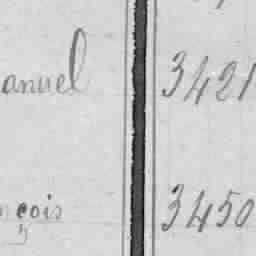 anuel 3421
nçois 3450